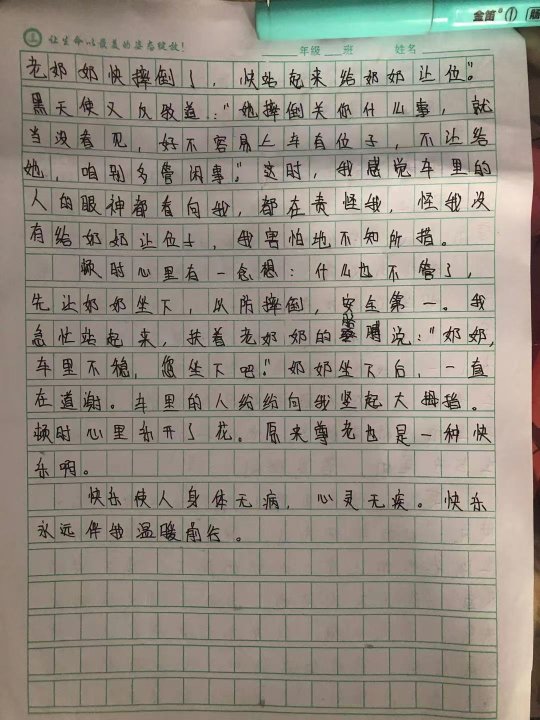 金笛 ①
让生命以最美的姿态绽放!
年级 班 姓名
老奶奶快摔倒了,快站起来给奶奶让位。"
黑天使又反驳道:"她摔倒关你什么事,就
当没看见,好不容易上车有位子,不让给
她,咱别多管闲事。"这时,我感觉车里的
人的眼神都看向我,都在责怪我,怪我没
有给奶奶让位子,我害怕地不知所措。
顿时心里有一念想:什么也不管了,
先让奶奶坐下,以防摔倒,安全第一。我
急忙站起来,扶着老奶奶的说:"奶奶,
车里不稳,您坐下吧。"奶奶坐下后,一直
在道谢。车里的人给给向我竖起大拇指。
顿时心里乐开了花。原来尊老也是一种快
乐啊。
快乐使人身体无病,心灵无疾。快乐
永远伴我温暖前行。